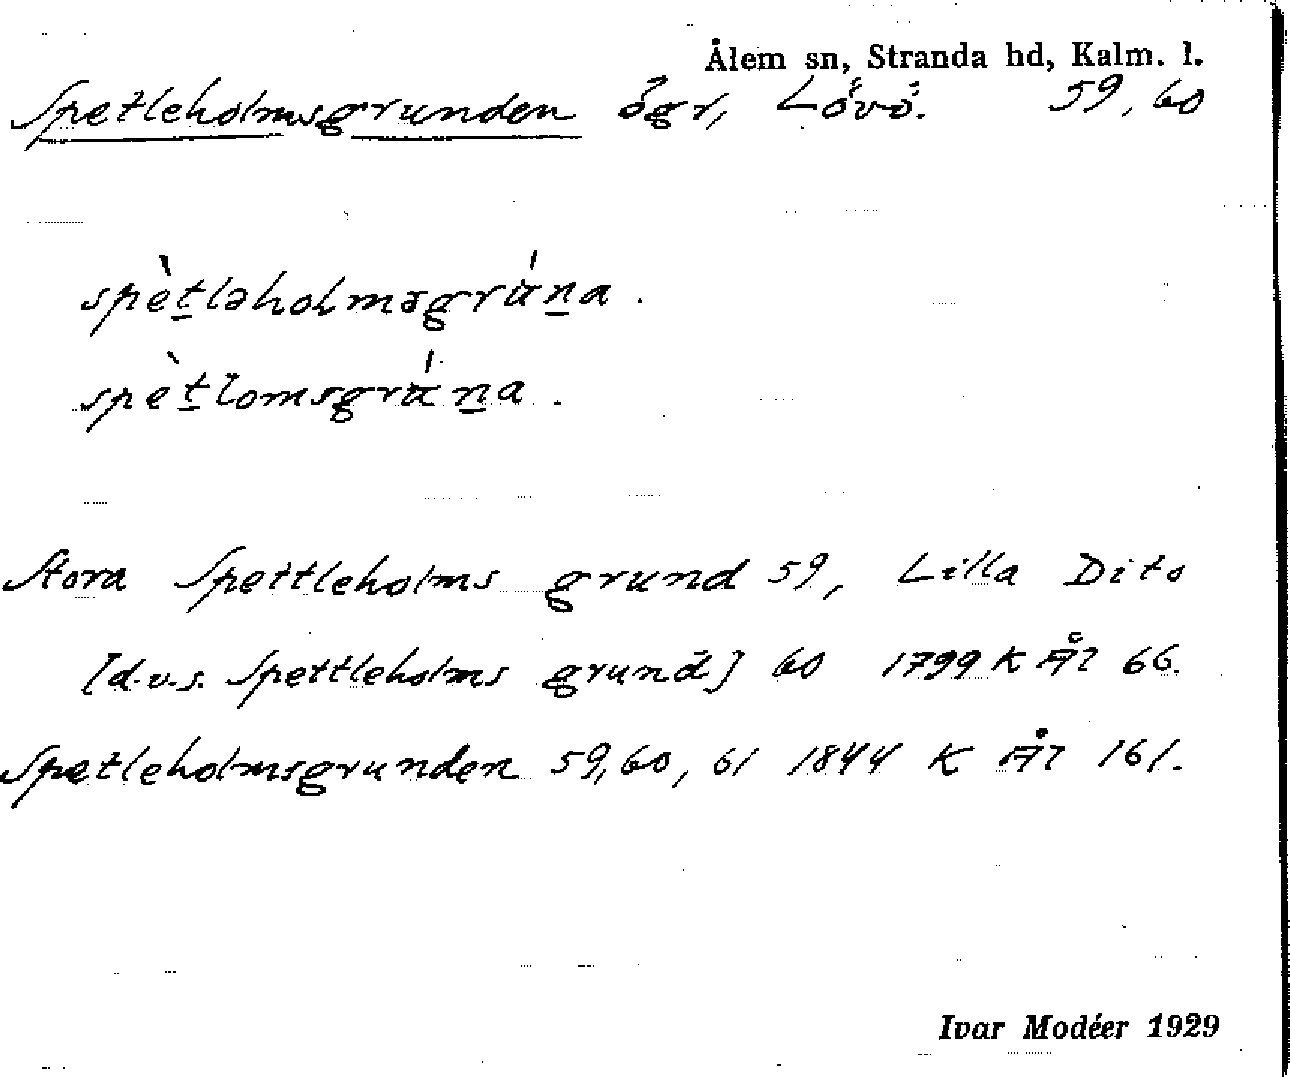 Ålem sn, Stranda hd, Kalm. l.
Spetleholmsgrunden ögr, Lövö. 59, 60
spètləholmsgrána.
spètlomsgrána.
Stora Spettleholms grund 59, Lilla Dito
[d.v.s. Spettleholms grund] 60 1799 K Ål 66.
Spetleholmsgrunden 59, 60, 61 1844 K Ål 161.
Ivar Modéer 1929